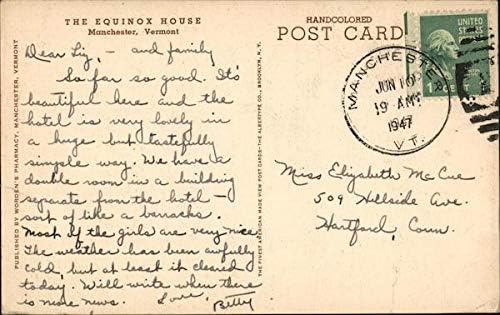 THE EQUINOX HOUSE
Manchester, Vermont
Dear Liz, - and family
So far so good. It's
beautiful here and the
hotel is very lovely in
a huge but tastefully
simple way. We have a
double room in a building
separate from the hotel -
sort of like a barracks.
Most of the girls are very nice.
The weather has been awfully
cold but at least it cleared
today. Will write when there
is more news. Love,
Betty
PUBLISHED BY WORDEN'S PHARMACY, MANCHESTER, VERMONT
THE FINEST AMERICAN MADE VIEW POST CARDS - THE ALBERTYPE CO., BROOKLYN, N.Y.
HANDCOLORED
POST CARD
MANCHESTER
JUN 10
19 AM
1947
VT.
UNITED
STATES
1
Miss Elizabeth McCue
509 Hillside Ave.
Hartford, Conn.